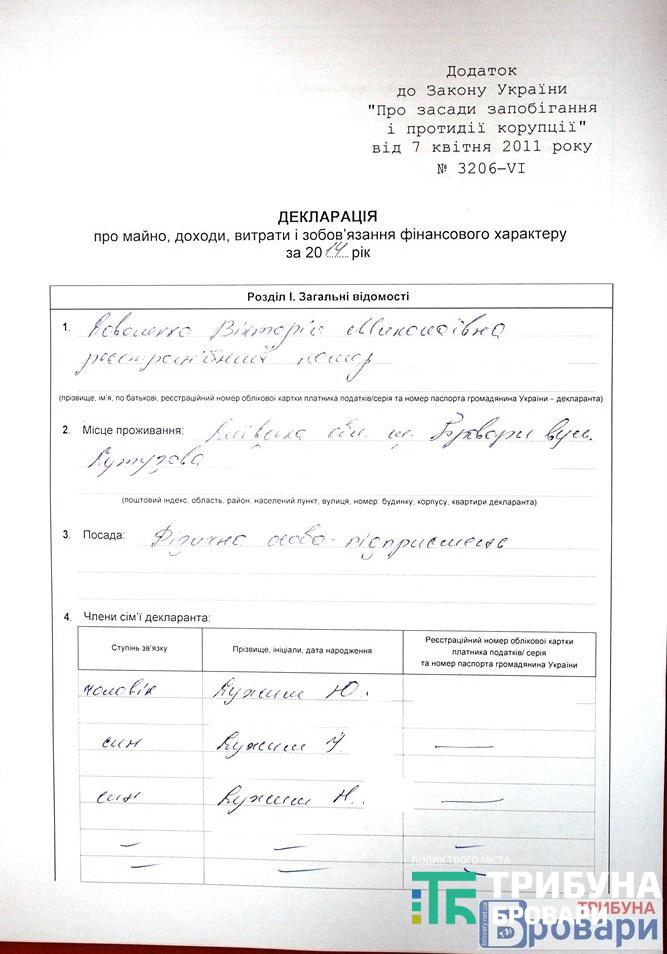 Додаток
до Закону України
"Про засади запобігання
і протидії корупції"
від 7 квітня 2011 року
№ 3206-VI
ДЕКЛАРАЦІЯ
про майно, доходи, витрати і зобов'язання фінансового характеру
за 2014 рік
Розділ І. Загальні відомості
1. Коваленко Вікторія Миколаївна
реєстраційний номер
(прізвище, ім'я, по батькові, реєстраційний номер облікової картки платника податків/серія та номер паспорта громадянина України – декларанта)
2. Місце проживання: Київська обл. м. Бровари вул.
Кутузова
(поштовий індекс, область, район, населений пункт, вулиця, номер: будинку, корпусу, квартири декларанта)
3. Посада: Фізична особа-підприємець
4. Члени сім'ї декларанта:
Ступінь зв'язку Прізвище, ініціали, дата народження Реєстраційний номер облікової картки
платника податків/ серія
та номер паспорта громадянина України
чоловік Ю.
син —
син Н. —
— — —
— — —
ПОЛИК ТВОГО МІСТА
ТРИБУНА
БРОВАРИ
ТРИБУНА
Бровари
brovary.net.ua